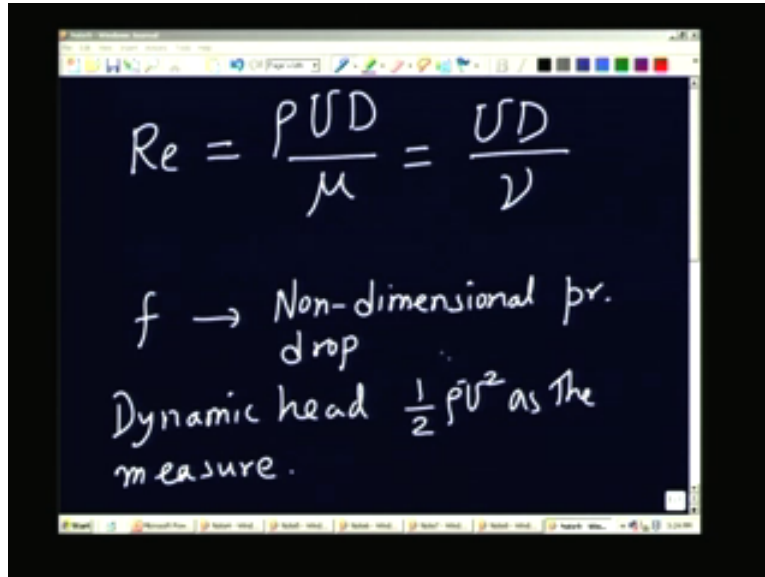 Re = ρUD/μ = UD/ν
f → Non-dimensional pr.
drop
Dynamic head 1/2 ρU² as the
measure.